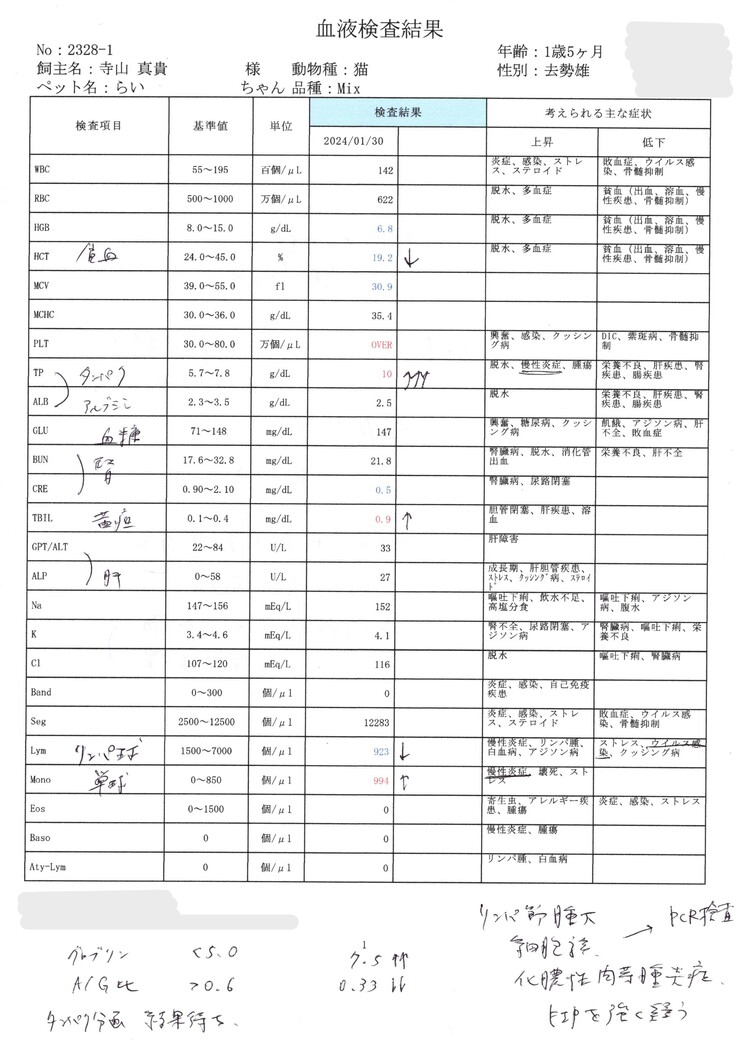 血液検査結果
No：2328-1 年齢：1歳5ヶ月
飼主名：寺山 真貴 様 動物種：猫 性別：去勢雄
ペット名：らい ちゃん 品種：Mix
検査項目 基準値 単位 検査結果 考えられる主な症状
2024/01/30 上昇 低下
WBC 55～195 百個/μL 142 炎症、感染、ストレス、ステロイド 敗血症、ウイルス感染、骨髄抑制
RBC 500～1000 万個/μL 622 脱水、多血症 貧血（出血、溶血、慢性疾患、骨髄抑制）
HGB 8.0～15.0 g/dL 6.8 脱水、多血症 貧血（出血、溶血、慢性疾患、骨髄抑制）
HCT 貧血 24.0～45.0 % 19.2 ↓ 脱水、多血症 貧血（出血、溶血、慢性疾患、骨髄抑制）
MCV 39.0～55.0 fl 30.9
MCHC 30.0～36.0 g/dL 35.4
PLT 30.0～80.0 万個/μL OVER 興奮、感染、クッシング病 DIC、紫斑病、骨髄抑制
TP タンパク 5.7～7.8 g/dL 10 ↑↑↑ 脱水、慢性炎症、腫瘍 栄養不良、肝疾患、腎疾患、腸疾患
ALB アルブミン 2.3～3.5 g/dL 2.5 脱水 栄養不良、肝疾患、腎疾患、腸疾患
GLU 血糖 71～148 mg/dL 147 興奮、糖尿病、クッシング病 飢餓、アジソン病、肝不全、敗血症
BUN 腎 17.6～32.8 mg/dL 21.8 腎臓病、脱水、消化管出血 栄養不良、肝不全
CRE 0.90～2.10 mg/dL 0.5 腎臓病、尿路閉塞
TBIL 黄疸 0.1～0.4 mg/dL 0.9 ↑ 胆管閉塞、肝疾患、溶血
GPT/ALT 22～84 U/L 33 肝障害
ALP 肝 0～58 U/L 27 成長期、肝胆管疾患、ストレス、クッシング病、ステロイド
Na 147～156 mEq/L 152 嘔吐下痢、飲水不足、高塩分食 嘔吐下痢、アジソン病、腹水
K 3.4～4.6 mEq/L 4.1 腎不全、尿路閉塞、アジソン病 腎臓病、嘔吐下痢、栄養不良
Cl 107～120 mEq/L 116 脱水 嘔吐下痢、腎臓病
Band 0～300 個/μl 0 炎症、感染、自己免疫疾患
Seg 2500～12500 個/μl 12283 炎症、感染、ストレス、ステロイド 敗血症、ウイルス感染、骨髄抑制
Lym リンパ球 1500～7000 個/μl 923 ↓ 慢性炎症、リンパ腫、白血病、アジソン病 ストレス、ウイルス感染、クッジング病
Mono 単球 0～850 個/μl 994 ↑ 慢性炎症、壊死、ストレス
Eos 0～1500 個/μl 0 寄生虫、アレルギー疾患、腫瘍 炎症、感染、ストレス
Baso 0 個/μl 0 慢性炎症、腫瘍
Aty-Lym 0 個/μl 0 リンパ腫、白血病
リンパ節腫大 → PCR検査
細胞診
化膿性肉芽腫炎症
FIPを強く疑う
グロブリン <5.0 7.5 ↑↑
A/G比 >0.6 0.33 ↓↓
タンパク分画 結果待ち